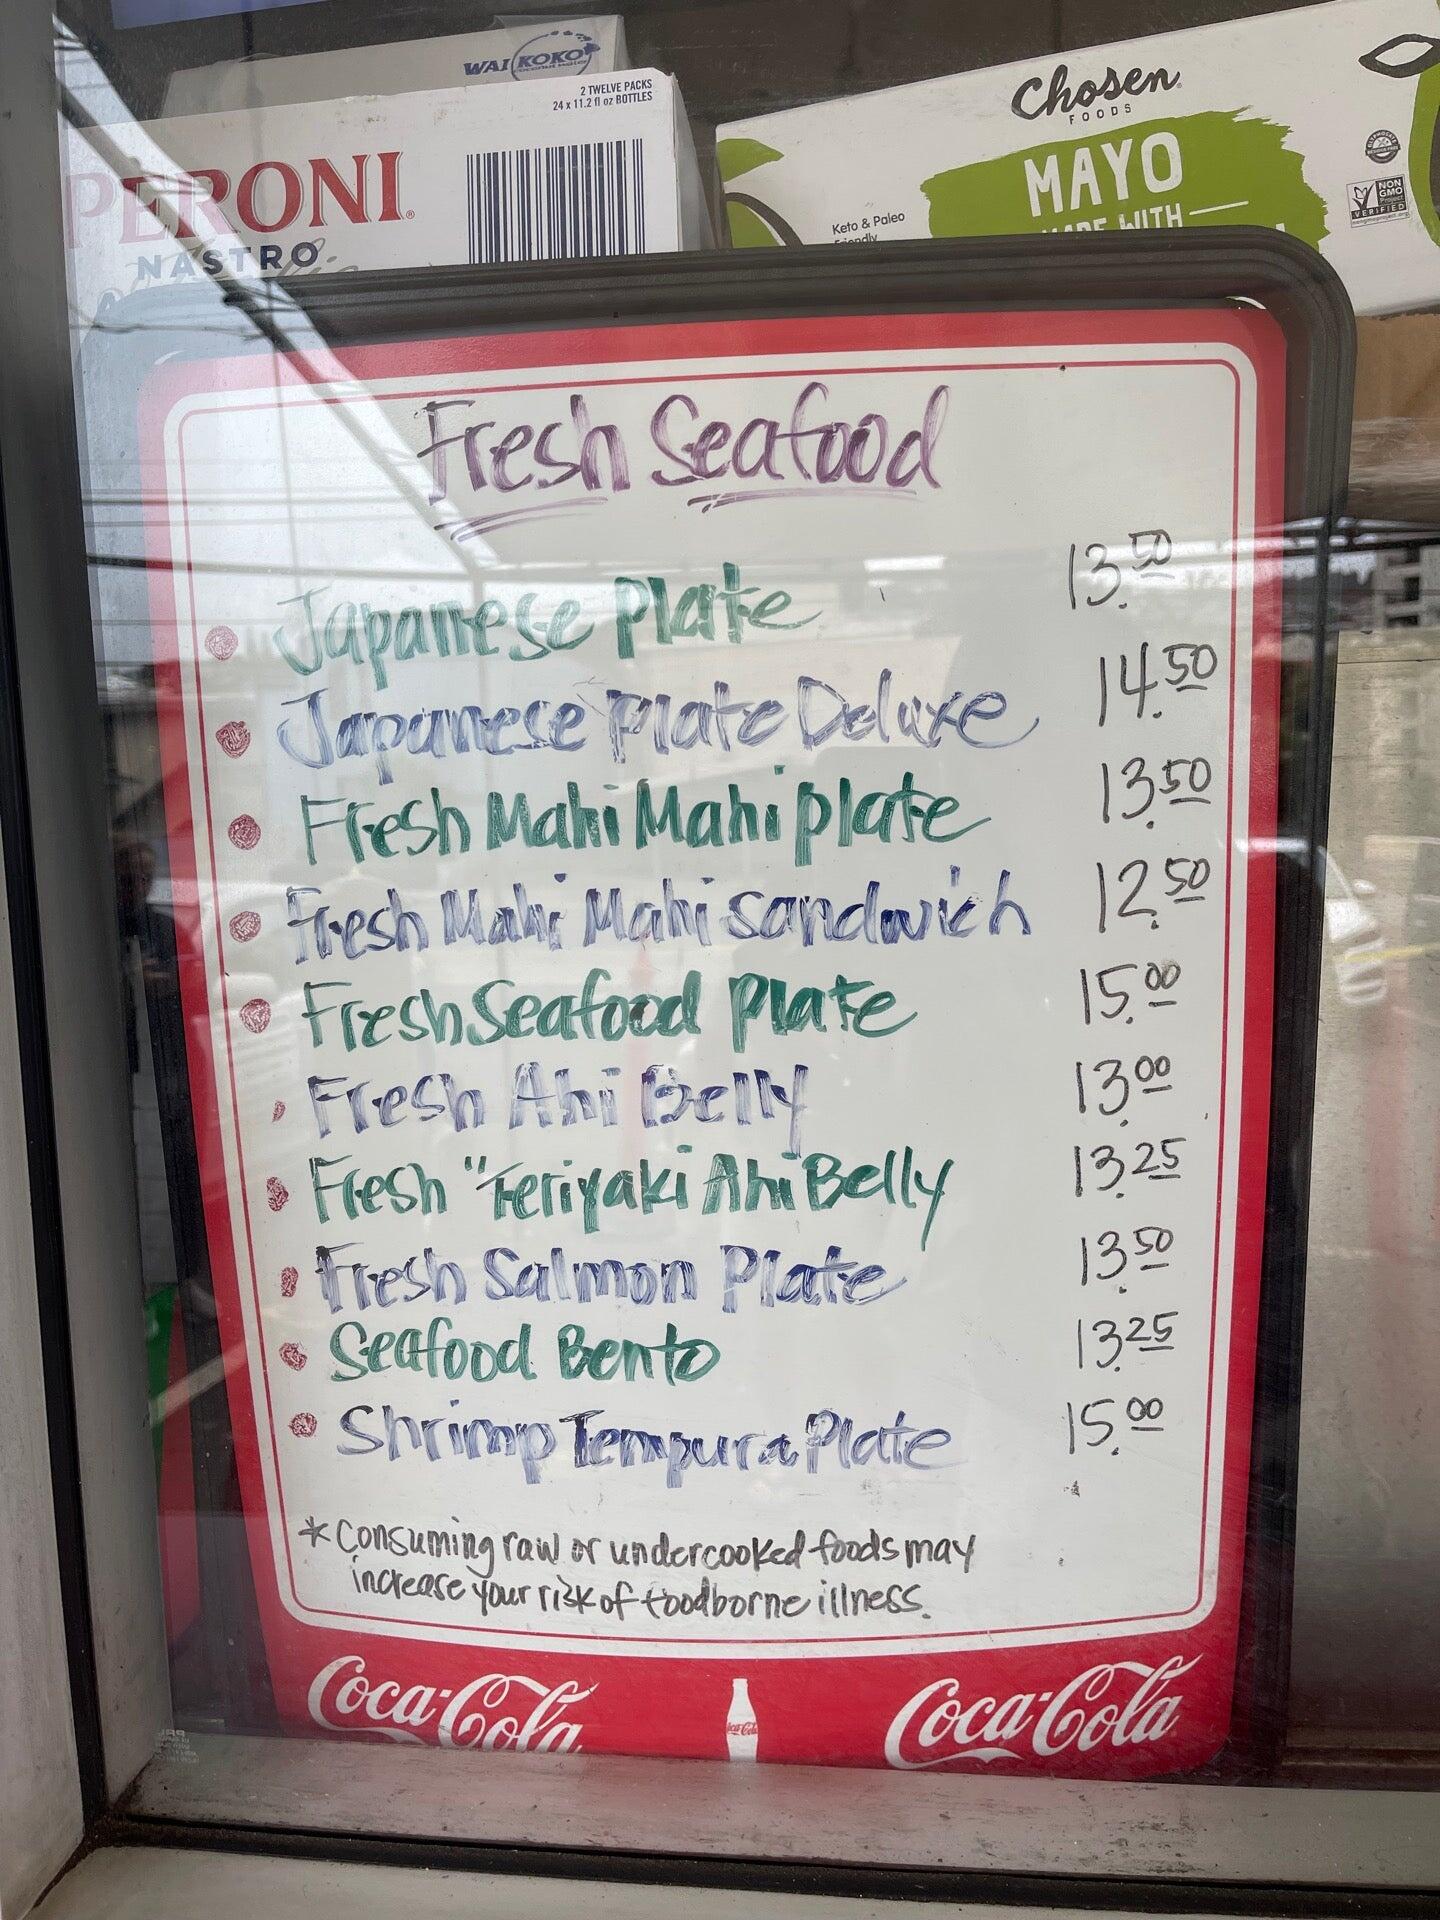 WAI KOKO
coconut water
2 TWELVE PACKS
24 x 11.2 fl oz BOTTLES
PERONI
NASTRO
Chosen
FOODS
MAYO
MADE WITH
Keto & Paleo
Friendly
NON
GMO
Project
VERIFIED
nongmoproject.org
Fresh Seafood
Japanese Plate 13.50
Japanese Plate Deluxe 14.50
Fresh Mahi Mahi plate 13.50
Fresh Mahi Mahi sandwich 12.50
Fresh Seafood Plate 15.00
Fresh Ahi Belly 13.00
Fresh "Teriyaki Ahi Belly 13.25
Fresh Salmon Plate 13.50
Seafood Bento 13.25
Shrimp Tempura Plate 15.00
* Consuming raw or undercooked foods may
increase your risk of foodborne illness.
Coca-Cola Coca-Cola Coca-Cola